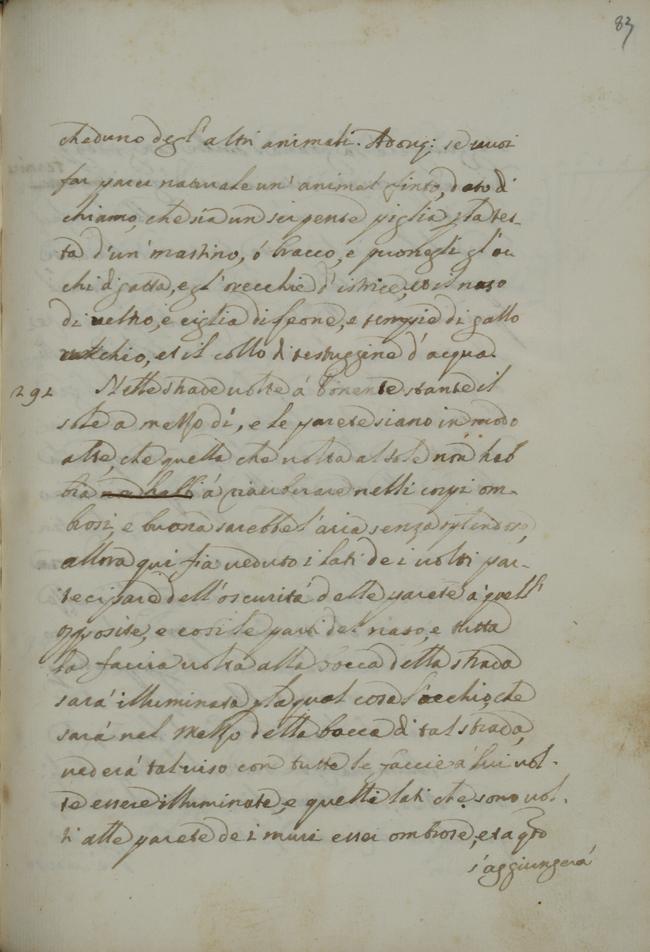 83
cheduno degl' altri animali. Adonq: se vuoi
far parer naturale un' animal finto, dato di
chiamo, che sia un serpente piglia p la tes-
ta d' un' mastino, ó bracco, e ponegli gl' oc
chi di gatta, e gl' orecchie d' istrice, et il naso
di veltro, e ciglia di leone, e tempie di gallo
vecchio, et il collo di testuggine d' acqua.
292 Nelle strade volte á Ponente stante il
sole a mezzo dí, e le parete siano in modo
alte, che quella che volta al sole non hab
bia á riaverberare nelli corpi om-
brosi, e buona sarebbe l' aria senza splendore,
allora qui fia veduto i lati de i volti par-
tecipare dell' oscuritá delle parete á quelli
opposite, e cosi le parti del naso, e tutta
la faccia volta alla bocca della strada
sará illuminata, p la qual cosa l' occhio, che
sará nel mezzo della bocca di tal strada,
vederá tal viso con tutte le faccie á lui vol-
te essere illuminate, e quelli lati che sono vol-
ti alle parete de i muri esser ombrose, et a qto
s' aggiungerá